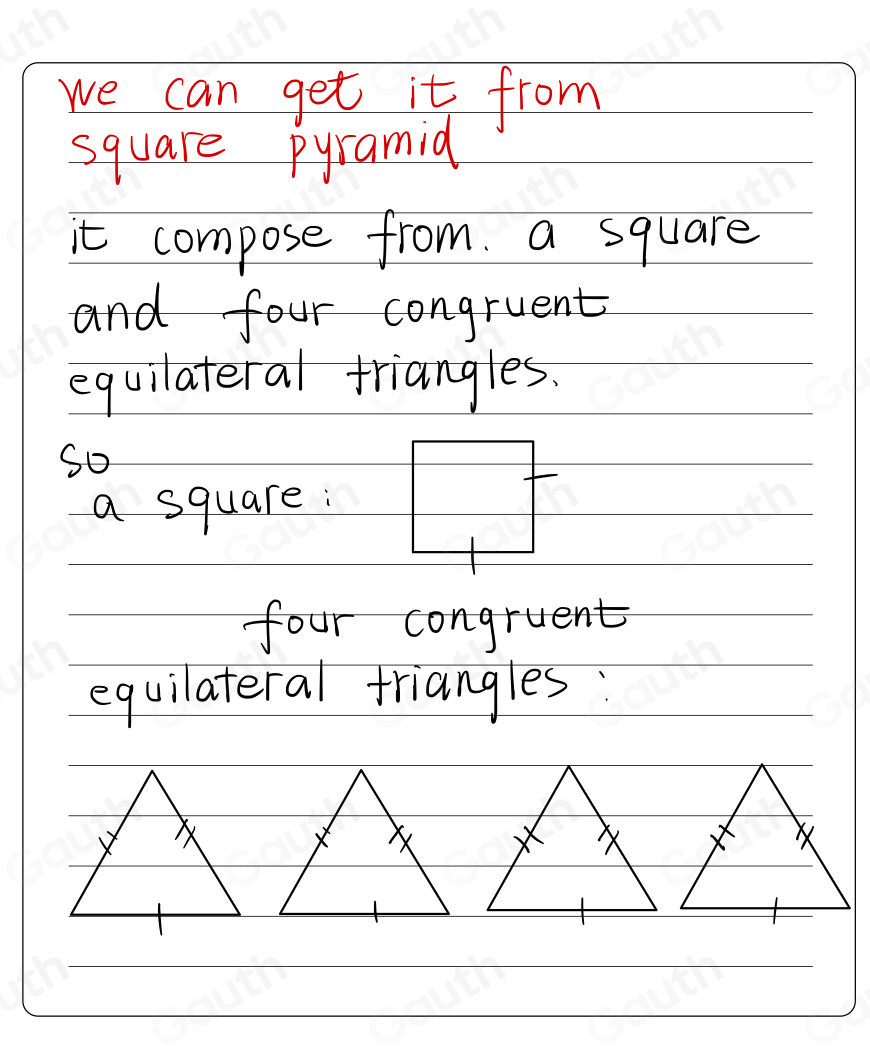 we can get it from
square pyramid
it compose from. a square
and four congruent
equilateral triangles.
so
a square:
four congruent
equilateral triangles: